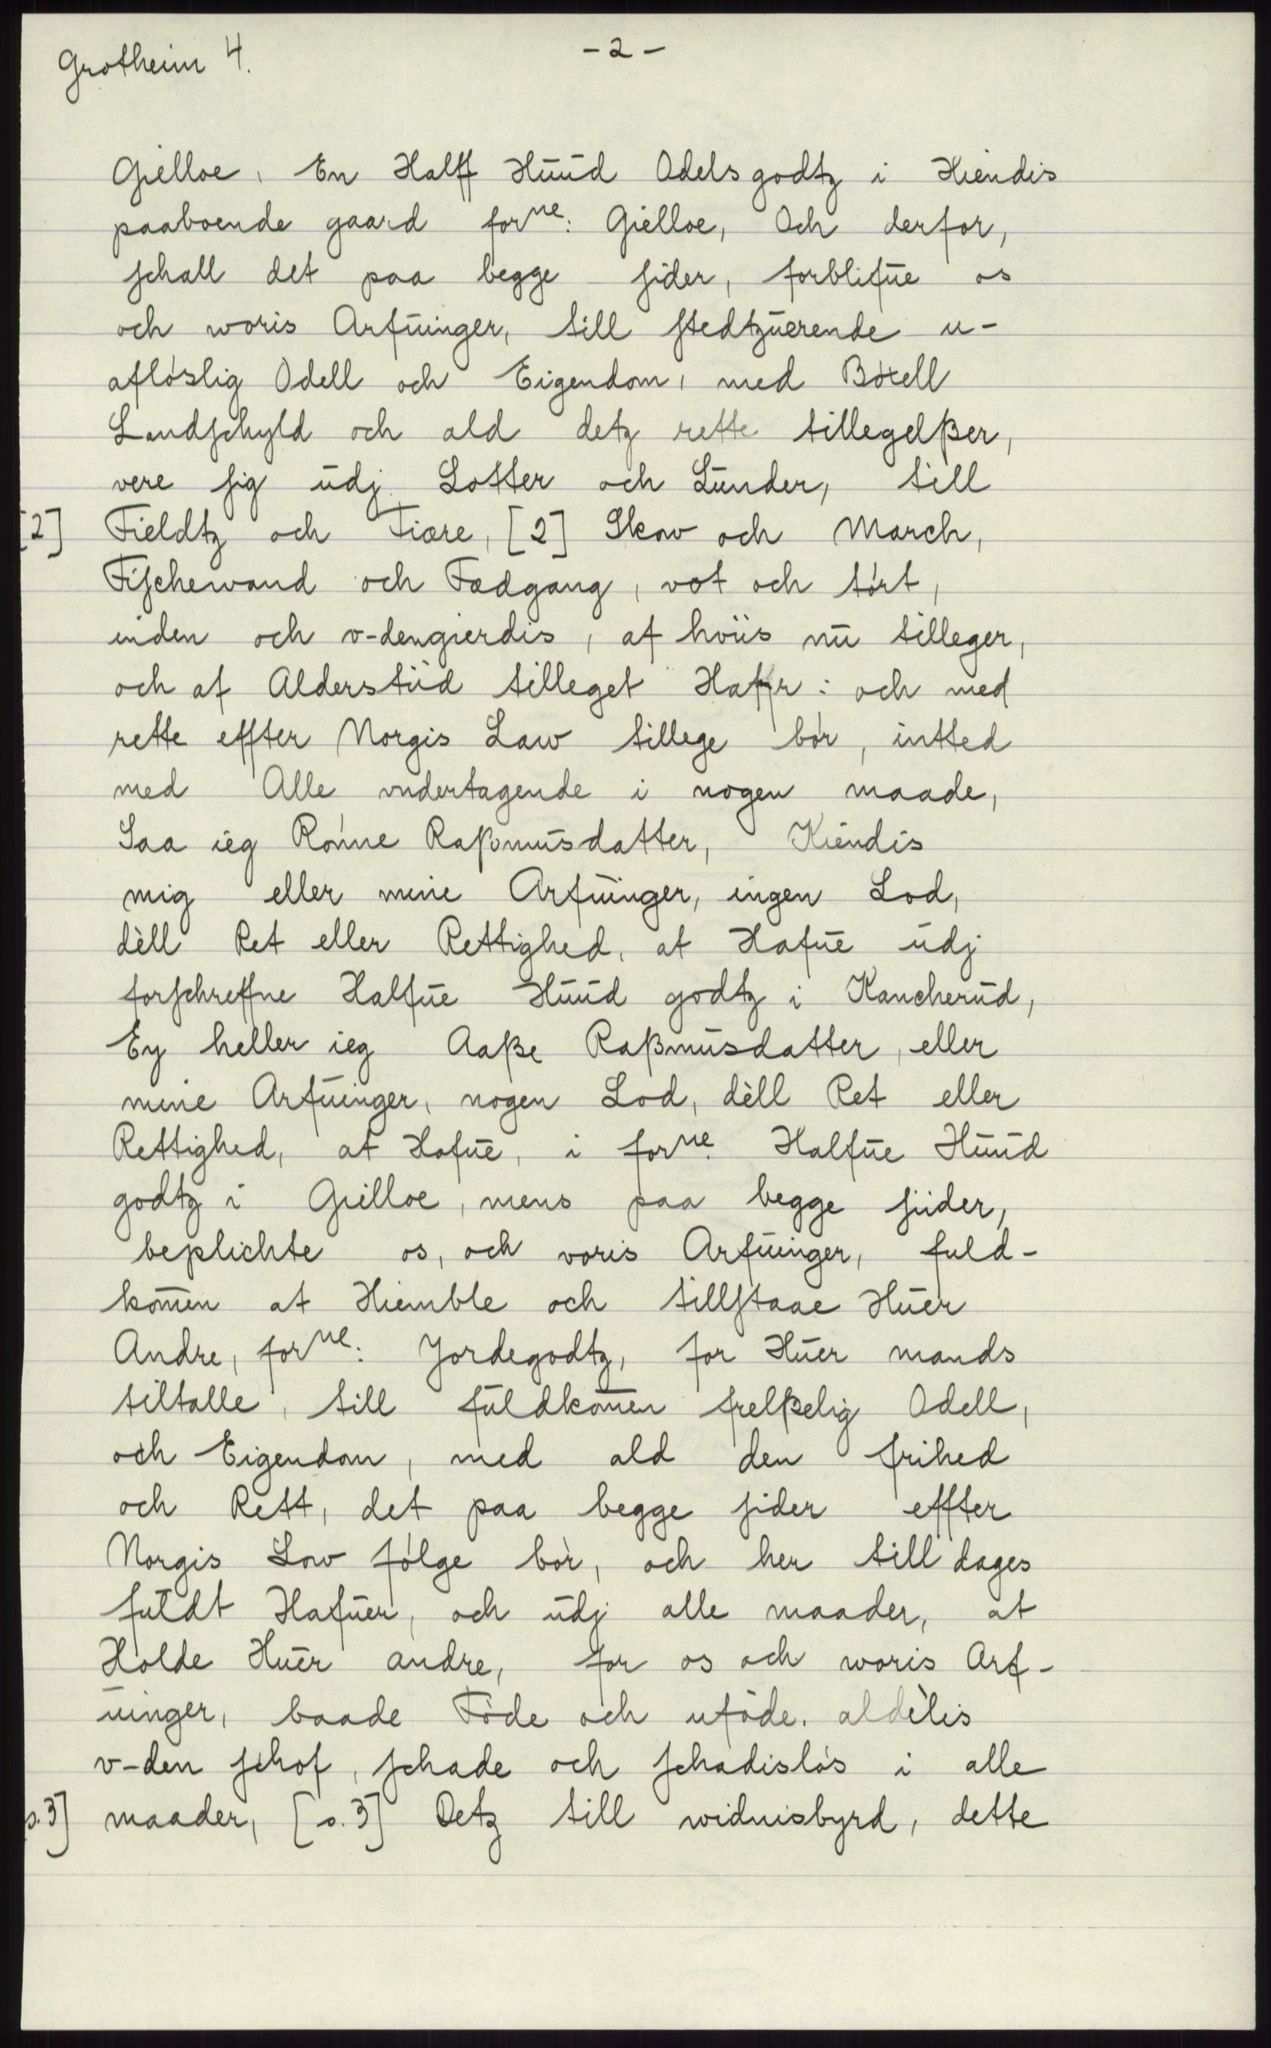 Grotheim 4.
- 2 -
Gielloe, En Halff Huud Odelsgodtz i Hiendis
paaboende gaard forne: Gielloe, Och derfor,
schall det paa begge sider, forblifue os
och woris Arfuinger, till stedtzuerende u-
afløslig Odell och Eigendom, med Bøxell
Landschyld och ald detz rette tillegelßer,
vere sig udj Lotter och Lunder, till
[2] Fieldtz och Fiære, [2] Skow och March,
Fischewand och Fædgang, vot och tørt,
inden och v-dengierdis, af hviis nu tilleger,
och af Alderstiid tilleget Haffr: och med
rette effter Norgis Law tillege bør, intted
med Alle vndertagende i nogen maade,
Saa ieg Rønne Raßmusdatter, Kiendis
mig eller mine Arfuinger, ingen Lod,
dèll Ret eller Rettighed, at Hafue udj
forschreffne Halfue Huud godtz i Kancherud,
Ey heller ieg Aaße Raßmusdatter, eller
mine Arfuinger, nogen Lod, dèll Ret eller
Rettighed, at Hafue, i forne Halfue Huud
godtz i Gielloe, mens paa begge siider,
beplichte os, och voris Arfuinger, fuld-
kom̄en at Hiemble och tillstaae Huer
Andre, forne: Jordegodtz, for Huer mands
tiltalle, till fuldkom̄en frelßelig Odell,
och Eigendom, med ald den frihed
och Rett, det paa begge sider effter
Norgis Low følge bør, och her till dages
fuldt Hafuer, och udj alle maader, at
Holde Huer andre, for os och woris Arf-
uinger, baade Føde och uføde. aldèlis
v-den schof, schade och schadisløs i alle
s.3] maader, [s.3] Detz till widnisbyrd, dette